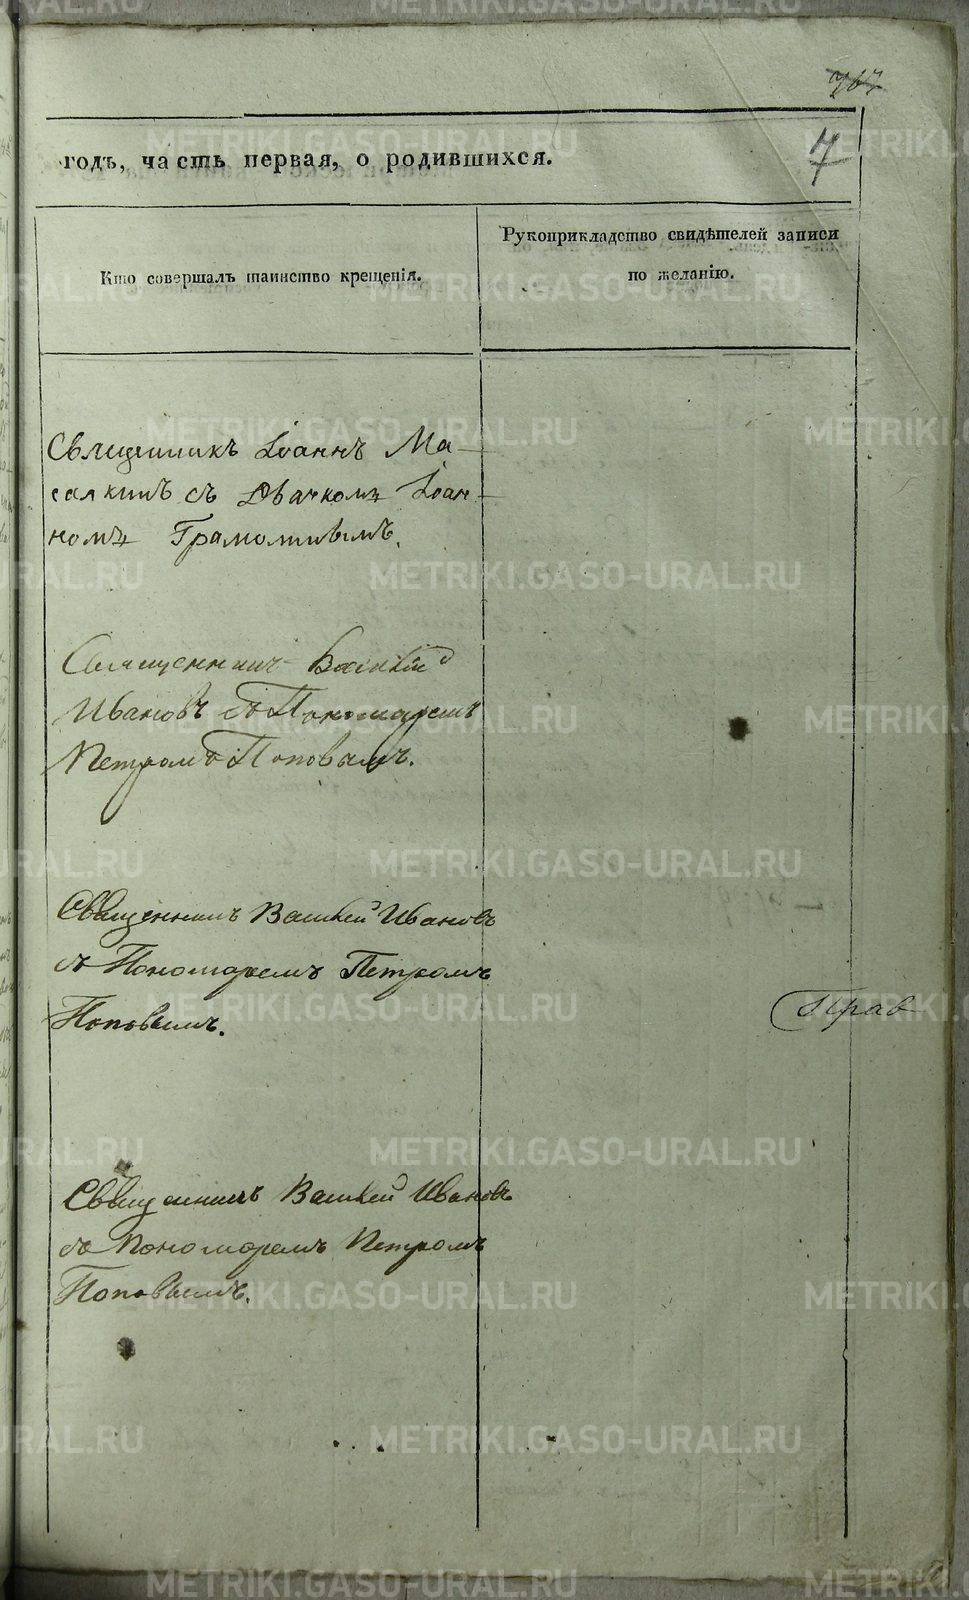 767
7
годъ, часть первая, о родившихся.
Кто совершалъ таинство крещенія.
Рукоприкладство свидѣтелей записи
по желанію.
Священникъ Іоаннъ Ма-
съ Дьячкомъ Іоан-
номъ Грамотивымъ.
Священникъ Василій
Ивановъ съ Пономаремъ
Петромъ Поповымъ.
Священникъ Василей Ивановъ
съ Пономаремъ Петромъ
Поповымъ.
Прав
Священникъ Василей Ивановъ
съ Пономаремъ Петромъ
Поповымъ.
METRIKI.GASO-URAL.RU